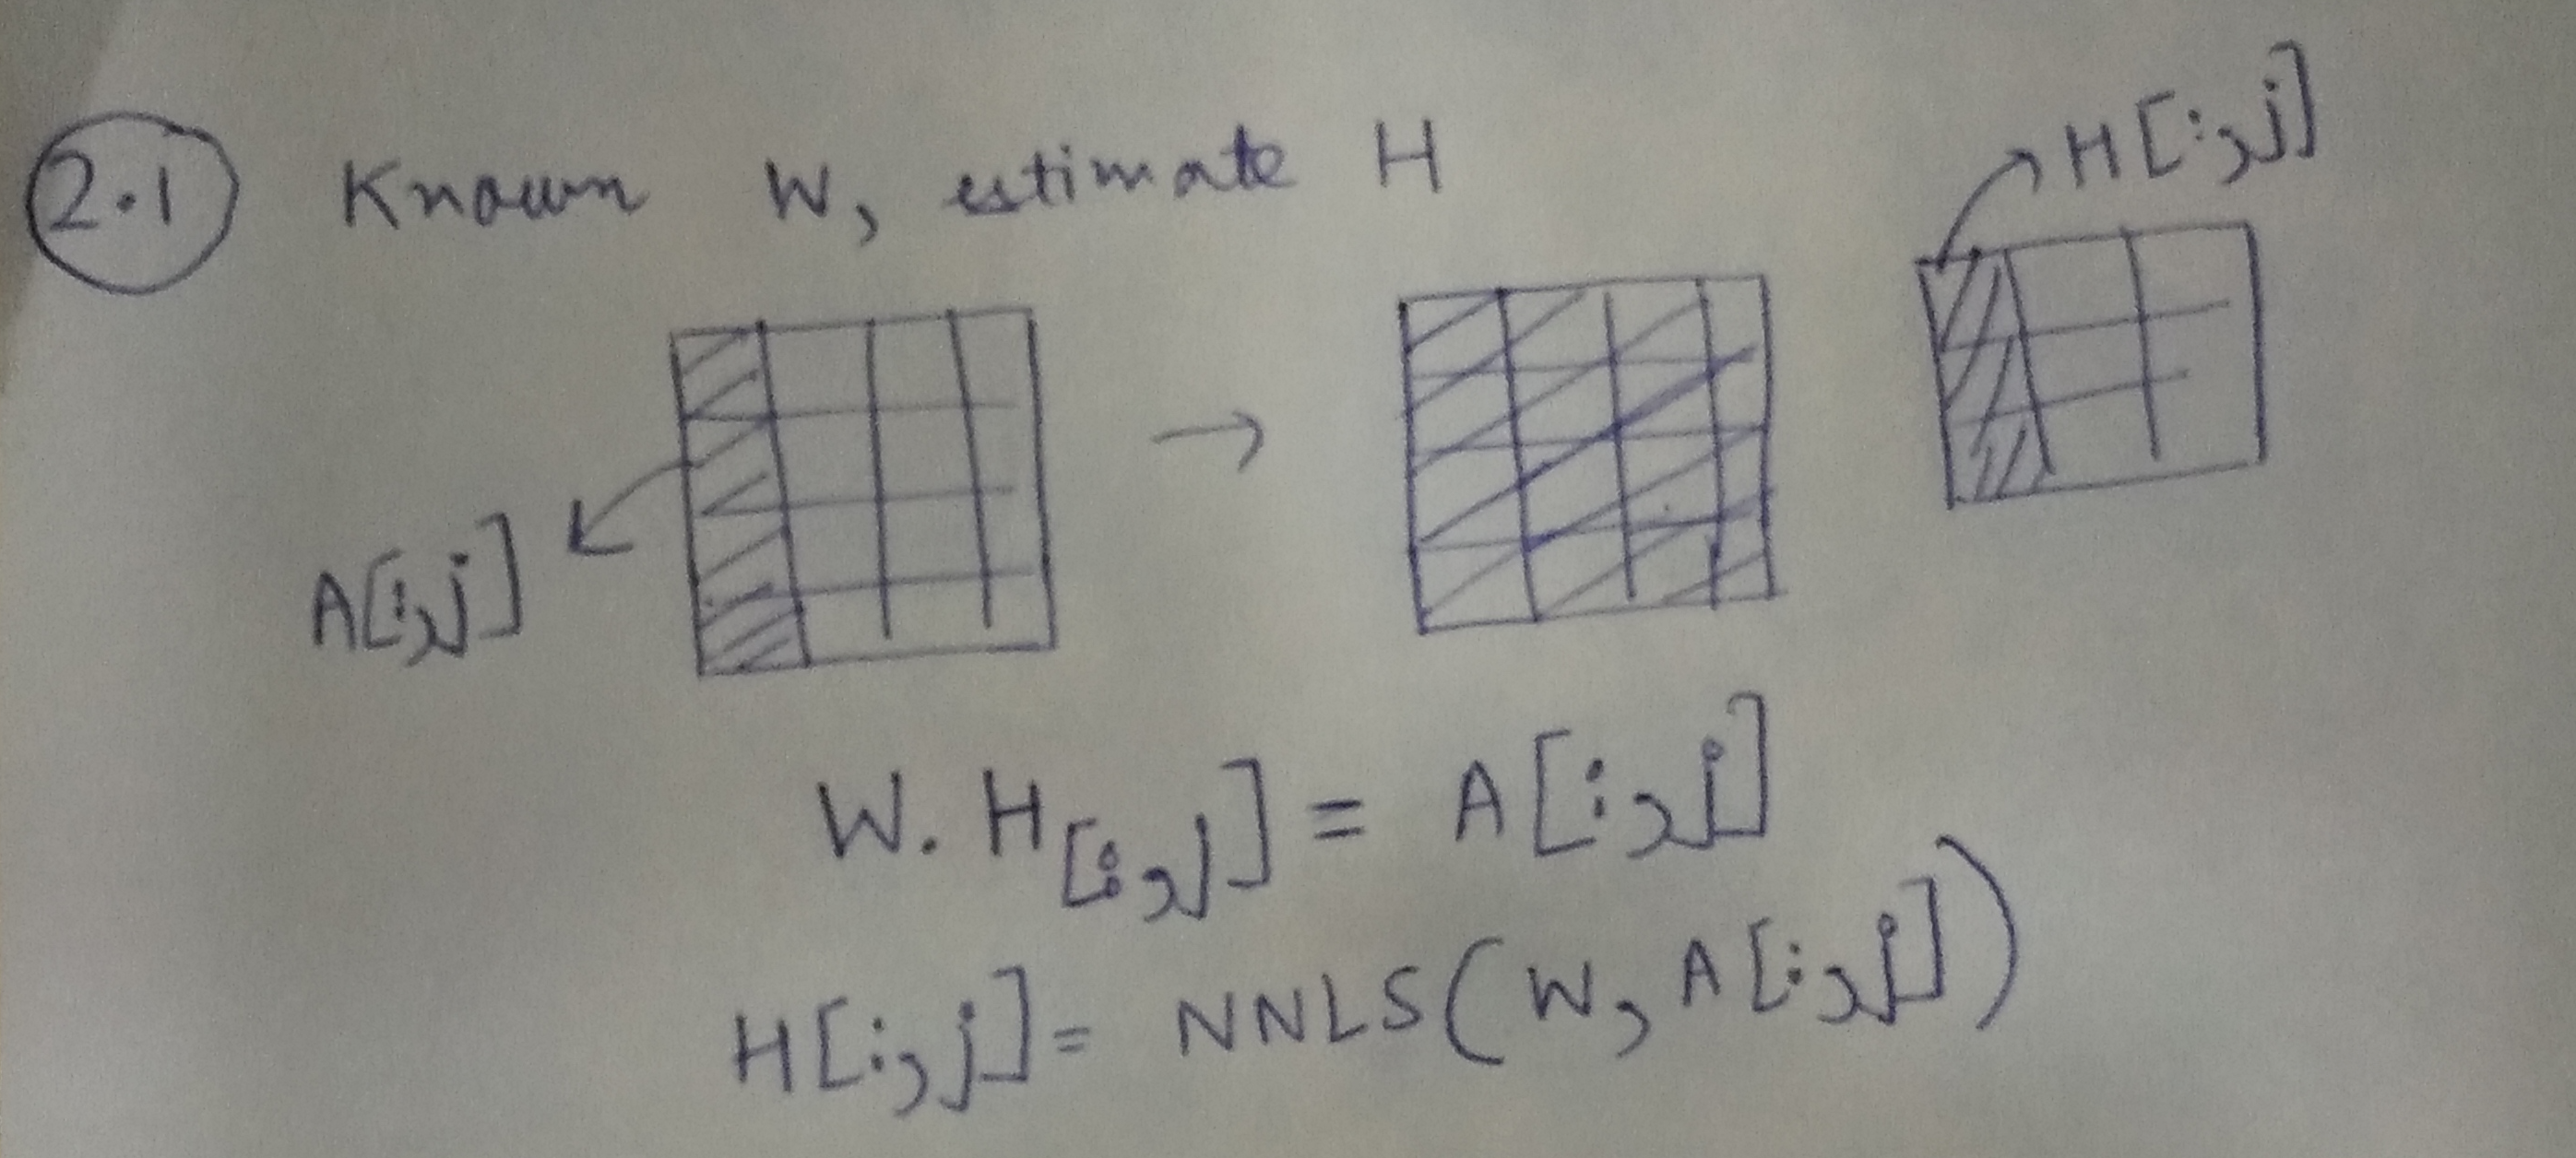 2.1 Known W, estimate H
H[:,j]
A[:,j]
W. H[:,j] = A[:,j]
H[:,j] = NNLS(W, A[:,j])